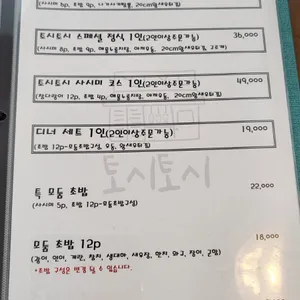 토시토시 스페셜 정식 1인(2인이상주문가능)
36,000
토시토시 사시미 코스 1인(2인이상주문가능)
49,000
디너 세트 1인(2인이상주문가능)
19,000
토시토시
특 모듬 초밥
22,000
(사시미 5p, 초밥 12p-모듬초밥구성)
모듬 초밥 12p
18,000
(광어, 연어, 계란, 참치, 생새우, 한치, 와규, 장어, 군함)
*초밥 구성은 변경 될 수 있습니다.